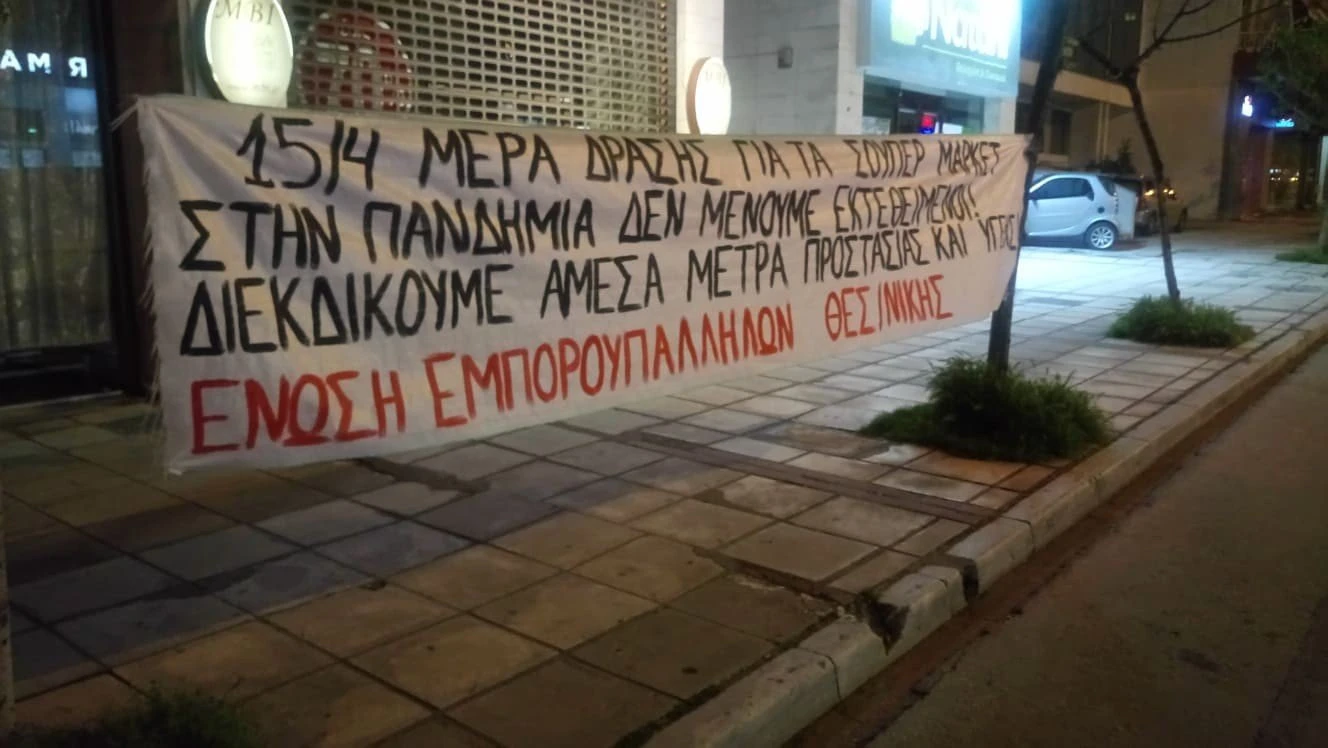 MBI
15/4 ΜΕΡΑ ΔΡΑΣΗΣ ΓΙΑ ΤΑ ΣΟΥΠΕΡ ΜΑΡΚΕΤ
ΣΤΗΝ ΠΑΝΔΗΜΙΑ ΔΕΝ ΜΕΝΟΥΜΕ ΕΚΤΕΘΕΙΜΕΝΟΙ!
ΔΙΕΚΔΙΚΟΥΜΕ ΑΜΕΣΑ ΜΕΤΡΑ ΠΡΟΣΤΑΣΙΑΣ ΚΑΙ
ΕΝΩΣΗ ΕΜΠΟΡΟΥΠΑΛΛΗΛΩΝ ΘΕΣ/ΝΙΚΗΣ